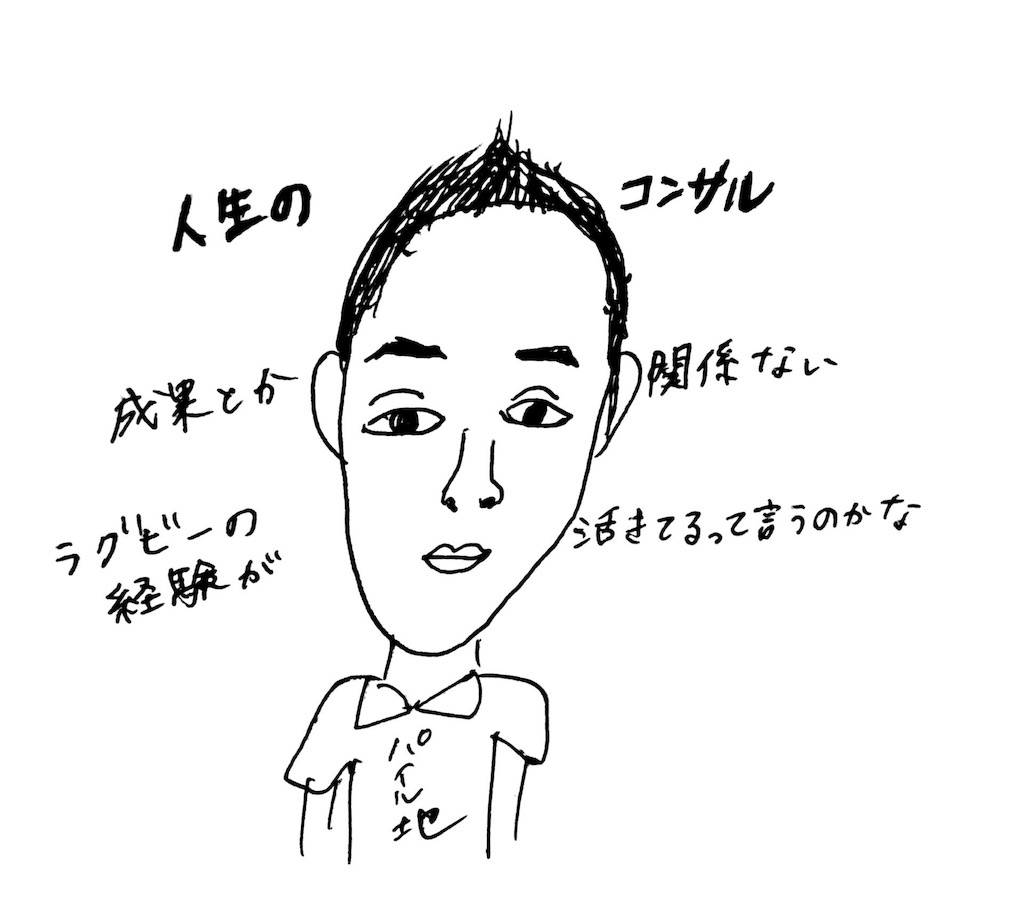 人生の コンサル
成果とか 関係ない
ラグビーの
経験が 活きてるって言うのかな
パイル地